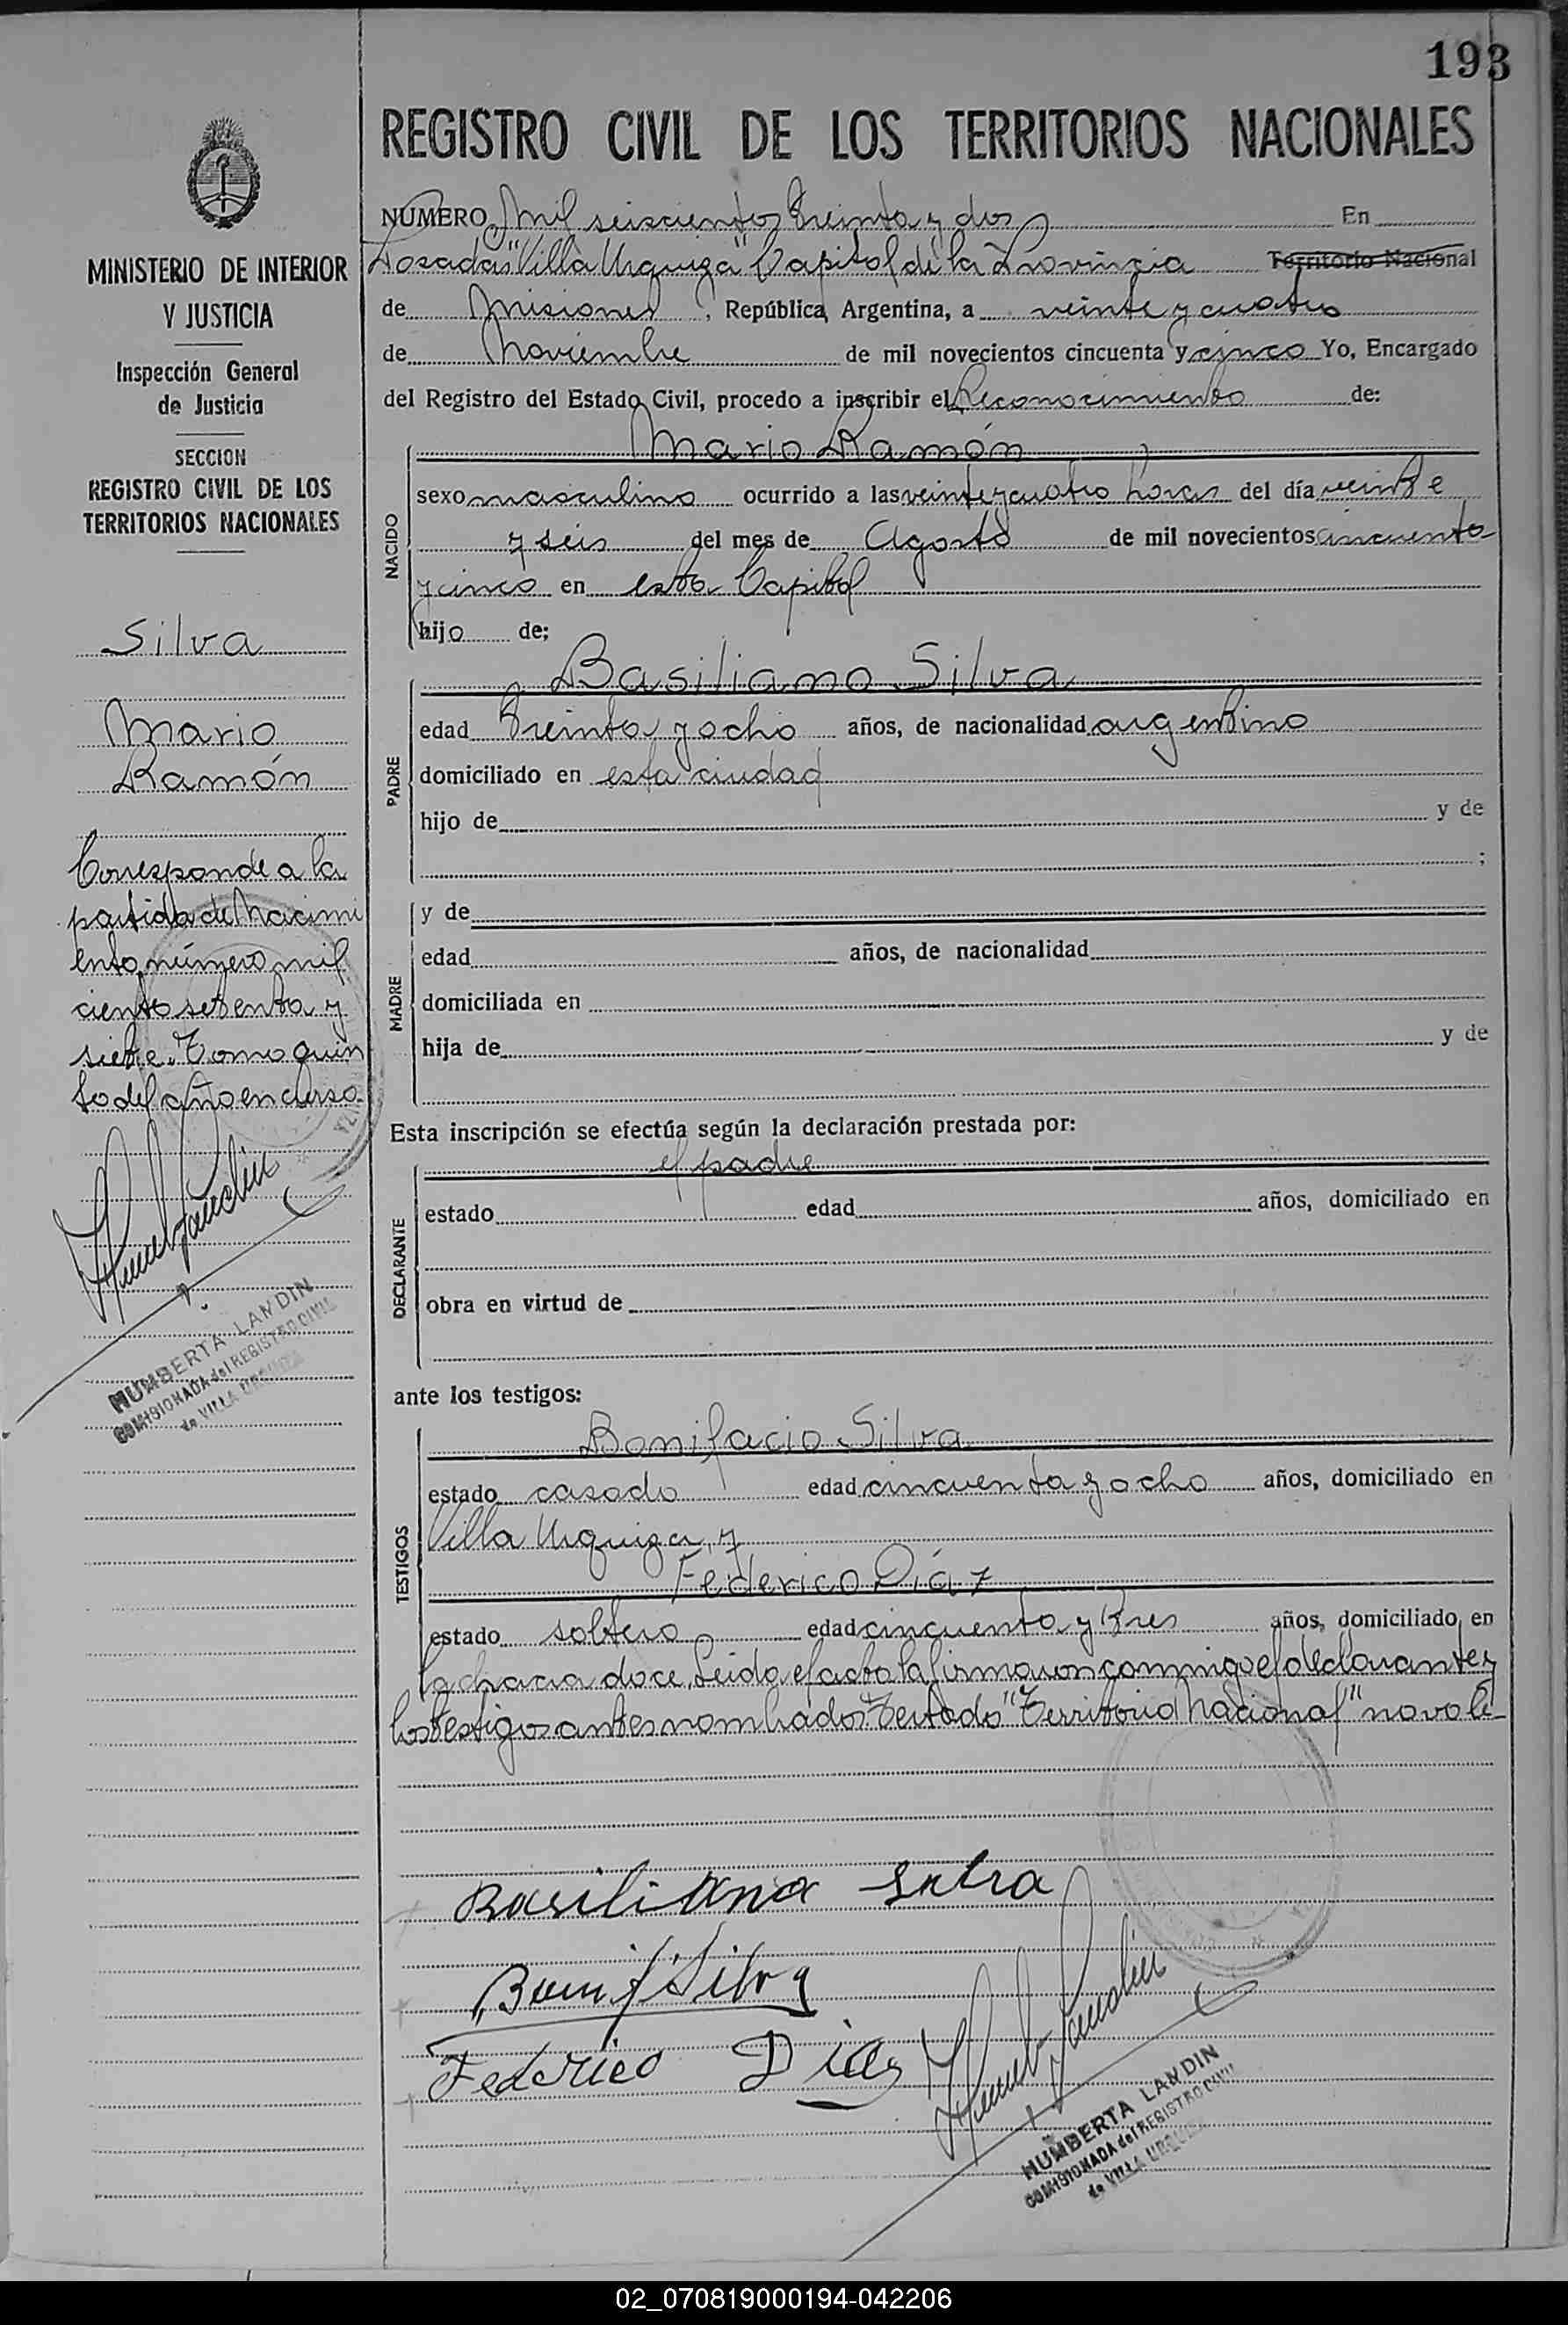 193
REGISTRO CIVIL DE LOS TERRITORIOS NACIONALES
NUMERO Mil seiscientos treinta y dos En
Posadas "Villa Urquiza" Capital de la Provincia Territorio Nacional
de Misiones, República Argentina, a veinte y cuatro
de Noviembre de mil novecientos cincuenta y cinco Yo, Encargado
del Registro del Estado Civil, procedo a inscribir el Reconocimiento de:
NACIDO
Mario Ramón
sexo masculino ocurrido a las veinte y cuatro horas del día veinte
y seis del mes de Agosto de mil novecientos cincuenta
y cinco en esta Capital
hijo de;
PADRE
Basiliano Silva
edad treinta y ocho años, de nacionalidad argentino
domiciliado en esta ciudad
hijo de y de
;
MADRE
y de
edad años, de nacionalidad
domiciliada en
hija de y de
Esta inscripción se efectúa según la declaración prestada por:
DECLARANTE
el padre
estado edad años, domiciliado en
obra en virtud de
ante los testigos:
TESTIGOS
Bonifacio Silva
estado casado edad cincuenta y ocho años, domiciliado en
Villa Urquiza, y
Federico Díaz
estado soltero edad cincuenta y tres años, domiciliado en
la chacra doce. Leída el acta la firmaron conmigo el declarante y
los testigos antes nombrados Testado "Territorio Nacional" no vale
Basiliano Silva
Bonif Silva
Federico Diaz
HUMBERTA LANDIN
COMISIONADA del REGISTRO CIVIL
de VILLA URQUIZA
MINISTERIO DE INTERIOR
Y JUSTICIA
Inspección General
de Justicia
SECCION
REGISTRO CIVIL DE LOS
TERRITORIOS NACIONALES
Silva
Mario
Ramón
Corresponde a la
partida de Nacimi
ento número mil
ciento setenta y
siete. Tomo quin
to del año en curso
HUMBERTA LANDIN
COMISIONADA del REGISTRO CIVIL
de VILLA URQUIZA
02_070819000194-042206